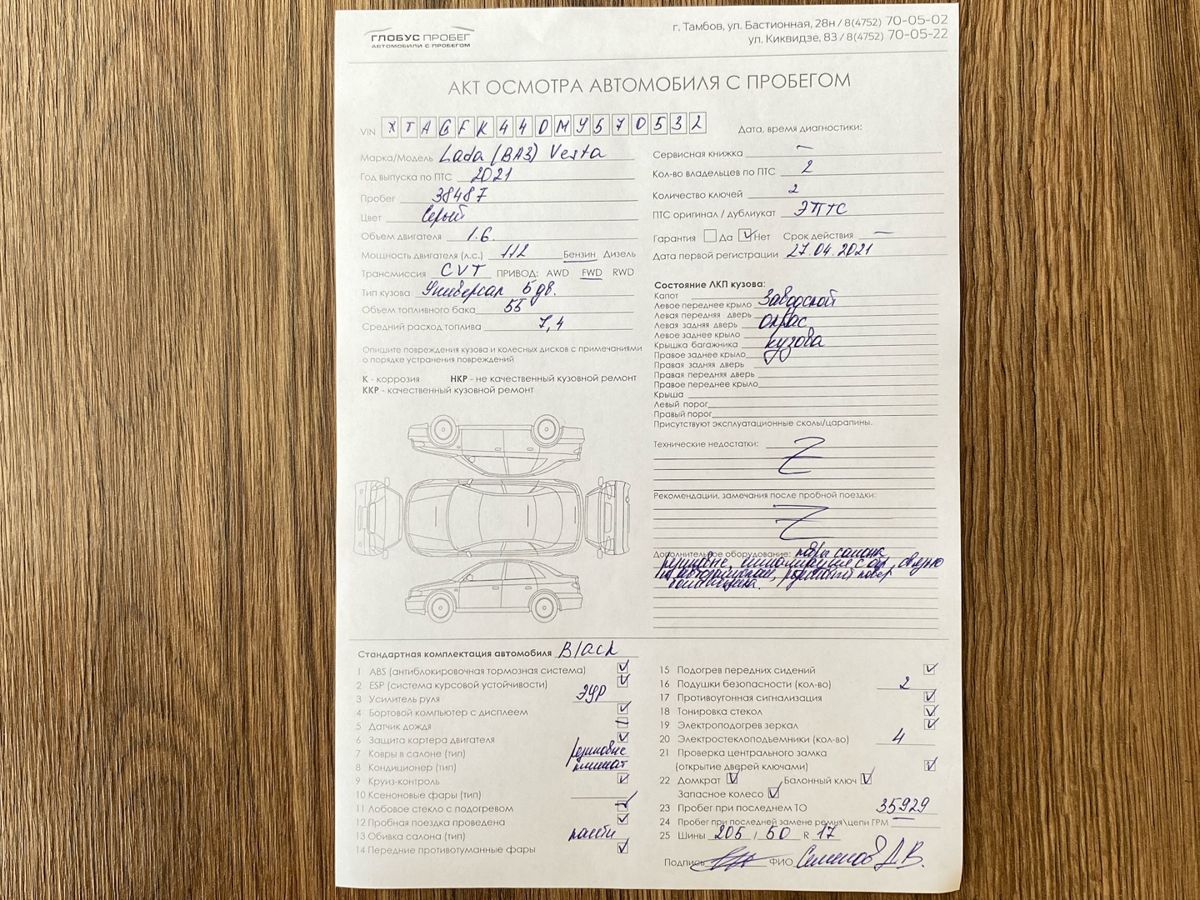 ГЛОБУС ПРОБЕГ
АВТОМОБИЛИ С ПРОБЕГОМ
г. Тамбов, ул. Бастионная, 28н / 8(4752) 70-05-02
ул. Киквидзе, 83 / 8(4752) 70-05-22
АКТ ОСМОТРА АВТОМОБИЛЯ С ПРОБЕГОМ
VIN XTAGFK440MY570532
Дата, время диагностики:
Марка/Модель Lada (ВАЗ) Vesta
Год выпуска по ПТС 2021
Пробег 38487
Цвет Серый
Объем двигателя 1.6.
Мощность двигателя (л.с.) 112 Бензин Дизель
Трансмиссия CVT ПРИВОД: AWD FWD RWD
Тип кузова Универсал 5 дв.
Объем топливного бака 55
Средний расход топлива 7,4
Опишите повреждения кузова и колесных дисков с примечаниями
о порядке устранения повреждений
К - коррозия НКР - не качественный кузовной ремонт
ККР - качественный кузовной ремонт
Сервисная книжка –
Кол-во владельцев по ПТС 2
Количество ключей 2
ПТС оригинал / дубликат ЭПТС
Гарантия Да Нет Срок действия –
Дата первой регистрации 27.04.2021
Состояние ЛКП кузова:
Капот
Левое переднее крыло Заводской
Левая передняя дверь
Левая задняя дверь окрас
Левое заднее крыло
Крышка багажника кузова
Правое заднее крыло
Правая задняя дверь
Правая передняя дверь
Правое переднее крыло
Крыша
Левый порог
Правый порог
Присутствуют эксплуатационные сколы/царапины.
Технические недостатки: Z
Рекомендации, замечания после пробной поездки:
Z
Дополнительное оборудование: ковры салона
резиновые, сигнализация с
Стандартная комплектация автомобиля Black
1 ABS (антиблокировочная тормозная система)
2 ESP (система курсовой устойчивости)
3 Усилитель руля ЭУР
4 Бортовой компьютер с дисплеем
5 Датчик дождя –
6 Защита картера двигателя
7 Ковры в салоне (тип) резиновые
8 Кондиционер (тип) климат
9 Круиз-контроль
10 Ксеноновые фары (тип)
11 Лобовое стекло с подогревом
12 Пробная поездка проведена
13 Обивка салона (тип)
14 Передние противотуманные фары
15 Подогрев передних сидений
16 Подушки безопасности (кол-во) 2
17 Противоугонная сигнализация
18 Тонировка стекол
19 Электроподогрев зеркал
20 Электростеклоподъемники (кол-во) 4
21 Проверка центрального замка
(открытие дверей ключами)
22 Домкрат Балонный ключ
Запасное колесо
23 Пробег при последнем ТО 35929
24 Пробег при последней замене ремня/цепи ГРМ –
25 Шины 205 / 50 R 17
Подпись ФИО Семенов Д.В.